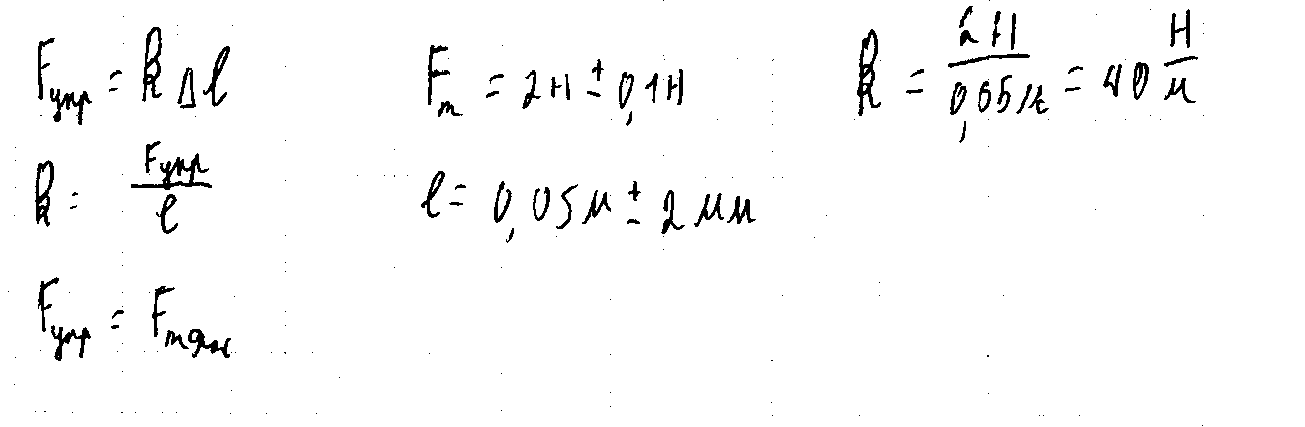 Fупр = k Δ l
k = Fупр / l
Fупр = Fтяж
Fт = 2Н ± 0,1Н
l = 0,05м ± 2 мм
k = 2Н / 0,05м = 40 Н/м